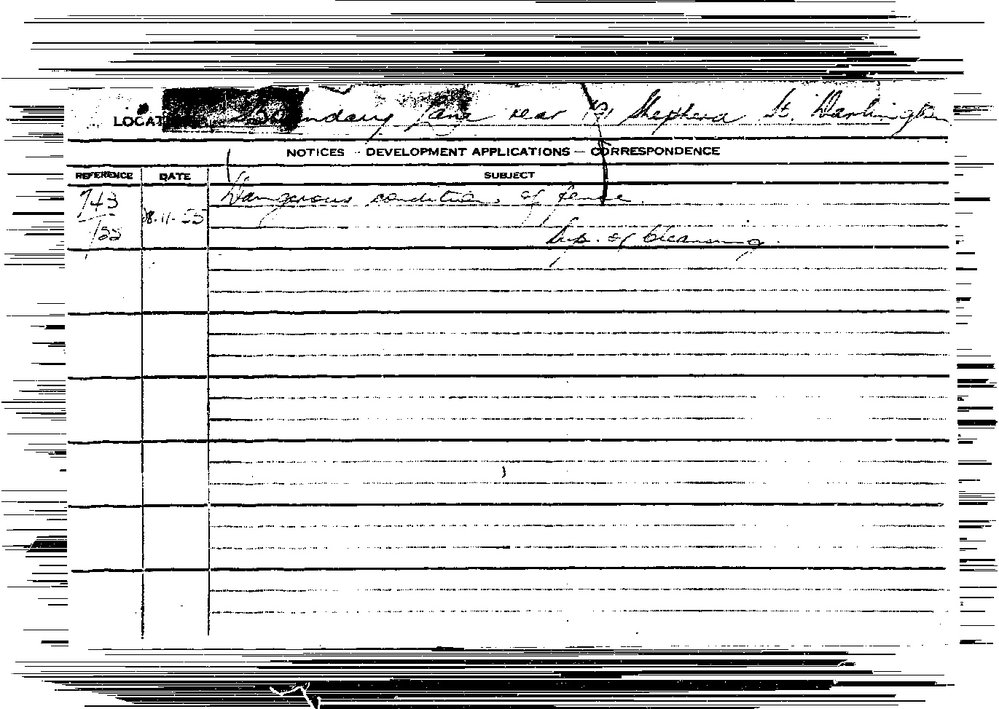 LOCAT Boundary Lane rear 131 Shepherd St. Darlington
NOTICES - DEVELOPMENT APPLICATIONS - CORRESPONDENCE
REFERENCE DATE SUBJECT
743 Dangerous condition of fence.
/55 18.11.55
Sup. of Cleansing.